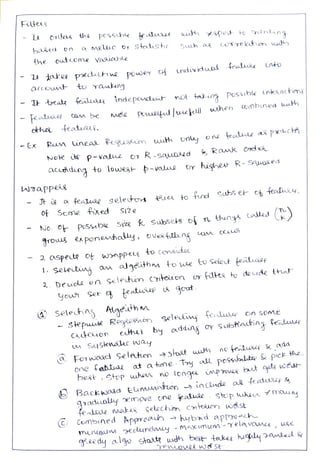 Filters
- It orders the possible features with respect to ranking
based on a metric or statistic such as correlation with
the outcome variable
- It takes predictive power of individual feature into
account to ranking
- It treats feature independent not taking possible interactions
- features can be more powerful/useful when combined with
other features.
- Ex Run linear Regression with only one feature as predictor
Note its p-value or R-squared & Rank order
according to lowest p-value or highest R-squared
Wrappers
- It is a feature selectors tries to find subset of features
of some fixed size
- No. of possible size k subsets of n things called (n k)
grows exponentially, overfitting can occur
- 2 aspects of wrappers to consider
1. Selecting an algorithm to use to select features
2. Decide on selection criterion or filter to decide that
your set of features is good.
① Selecting Algorithm
- Stepwise Regression selecting feature on some
criterion either by adding or subtracting features
in systematic way
ⓐ Forward Selection → Start with no features & add
one feature at a time. Try all possibilities & pick the
best. Stop when no longer improves but gets worst
ⓑ Backward Elimination → include all features &
gradually remove one feature. stop when removing
feature makes selection criterion worst
ⓒ Combined Approach → hybrid approach
minimum redundancy - maximum relevance, use
greedy algo starts with best takes highly ranked &
removes worst